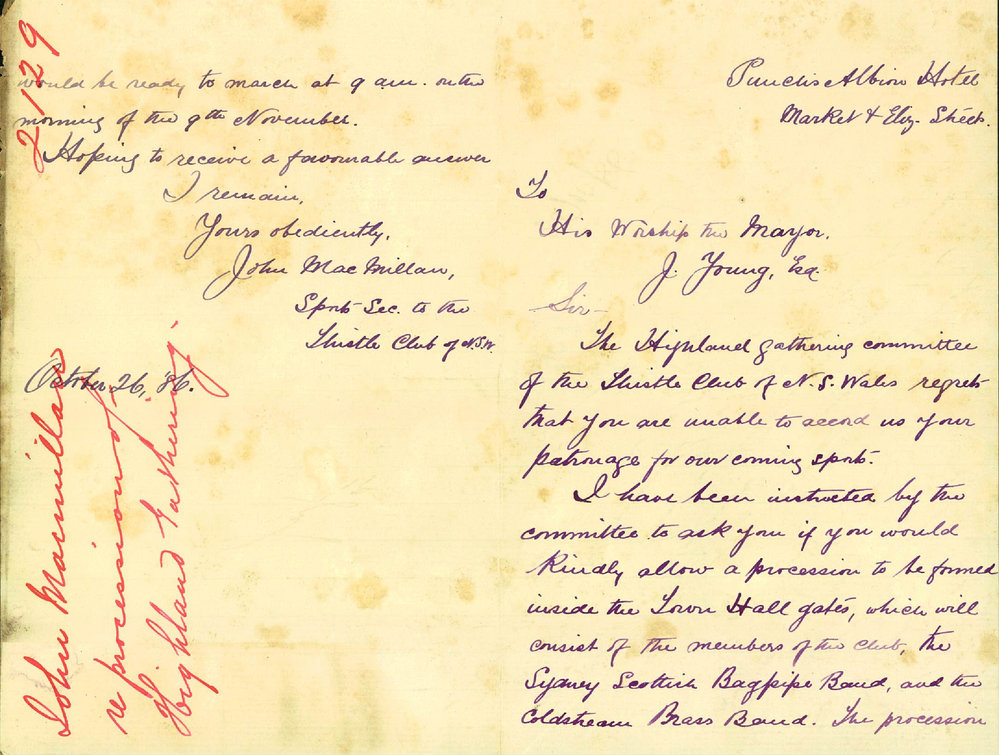 Punch's Albion Hotel
Market & Eliz. Streets.
To
His Worship the Mayor,
J. Young, Esq.
Sir—
The Highland gathering committee
of the Thistle Club of N.S. Wales regrets
that you are unable to accord us your
patronage for our coming sports.
I have been instructed by the
committee to ask you if you would
kindly allow a procession to be formed
inside the Town Hall gates, which will
consist of the members of the club, the
Sydney Scottish Bagpipe Band, and the
Coldstream Brass Band. The procession
would be ready to march at 9 a.m. on the
morning of the 9th November.
Hoping to receive a favourable answer
I remain,
Yours obediently,
John MacMillan,
Sports Sec. to the
Thistle Club of N.S.W.
October 26, '86.
2129
John Macmillan
re procession of
Highland Gathering